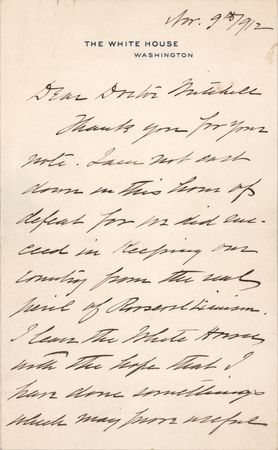 Nov. 9th 1912
THE WHITE HOUSE
WASHINGTON
Dear Doctor Mitchell
Thank you for your
note. I am not cast
down in this hour of
defeat for we did suc-
ceed in keeping our
country from the real
peril of Rooseveltianism.
I leave the White House
with the hope that I
have done something
which may prove useful